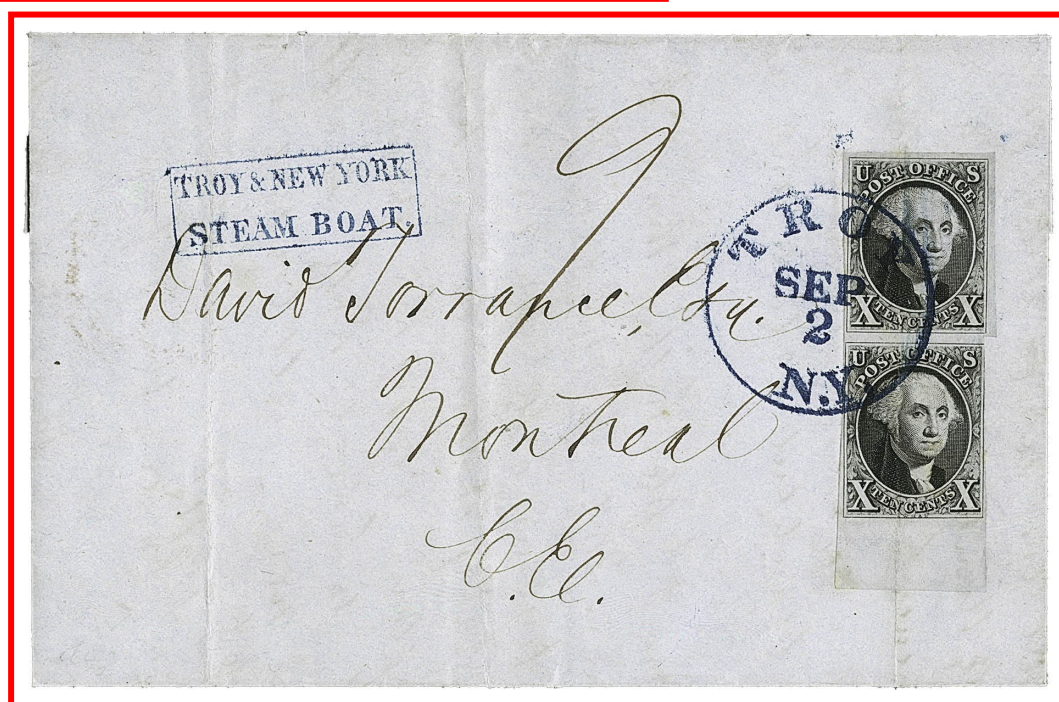 TROY & NEW YORK
STEAM BOAT.
9
David Torrance, Esq.
Montreal
C.E.
TROY
SEP
2
N.Y.
U S
POST OFFICE
X TEN CENTS X
U S
POST OFFICE
X TEN CENTS X